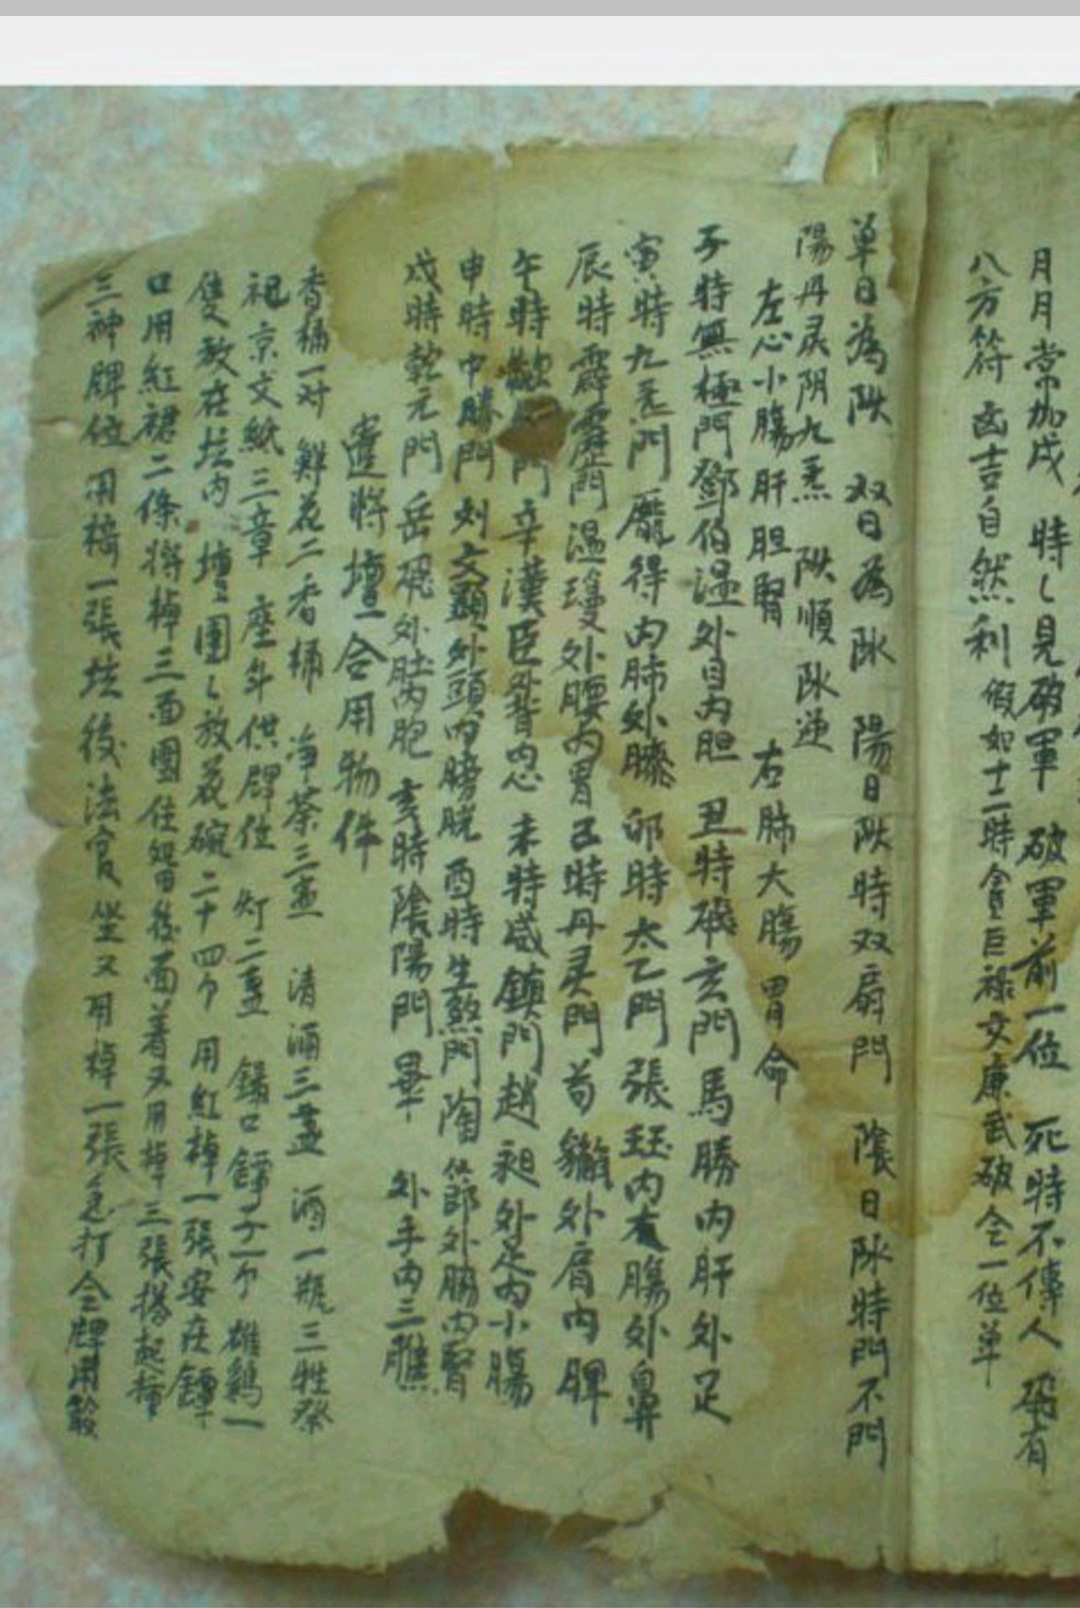 月月常加戌 時〻見破軍 破軍前一位 死時不傳人 有
八方符 凶吉自然利 假如十二時貪巨禄文廉武破令一位单
单日為𨸝 双日為 陽日 時双扇門 陰日 時門不門
陽丹灵阴九炁 順 逆
左心小腸肝胆腎 右肺大腸胃命
子時無極門鄧伯温外目内胆 丑時 玄門馬勝内肝外足
寅時九炁門龐得内肺外膝 卯時太乙門張珏内大腸外鼻
辰時霹靂門温瓊外腰内胃 己時丹灵門苟 外肩内脾
午時 門辛漢臣外背内心 未時威鎮門趙 外足内小腸
申時中勝門刘文顯外頭内膀胱 酉時生煞門陶 外 内腎
戌時乾元門岳飛外 内胞 亥時陰陽門畢 外手内三雕
遣將壇 合用物件
香桶一对 鮮花二香桶 净茶三盞 清酒三盞 酒一瓶三牲祭
祀京文紙三章 座斗供牌位 灯二盞 口鐔子一个雄鷄一
隻放在坛内 壇圍〻放花碗二十四个 用紅棹一張安在鐔
口用紅裙二條將棹三面圍住留後面着又用棹三張搭起
三神牌位用椅一張坛後法官坐又用棹一張 打令牌用